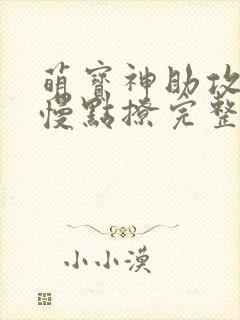 萌寶神助攻
慢點撩完整
小小漠